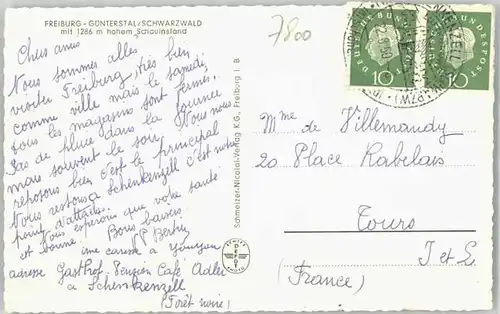 FREIBURG - GÜNTERSTAL/SCHWARZWALD
mit 1286 m hohem Schauinsland
7800
Chers amis
Nous sommes allés
visiter Freiburg, très bien
comme ville mais le samedi
tous les magasins sont fermés.
Pas de pluie dans la journée
mais souvent le soir. Nous nous
reposons bien c'est le principal
Nous restons à Schenkenzell c'est notre
point d'attache.
Nous espérons que votre santé
est bonne. Bons baisers.
une caresse à
adresse Gasthof-Pension Café Adler
à Schenkenzell
(Forêt noire)
Schmelzer-Nicolai-Verlag K.G., Freiburg i. B.
DEUTSCHE BUNDESPOST
10
DEUTSCHE BUNDESPOST
10
Mme de Villemandy
20 Place Rabelais
Tours
I et L.
(France)